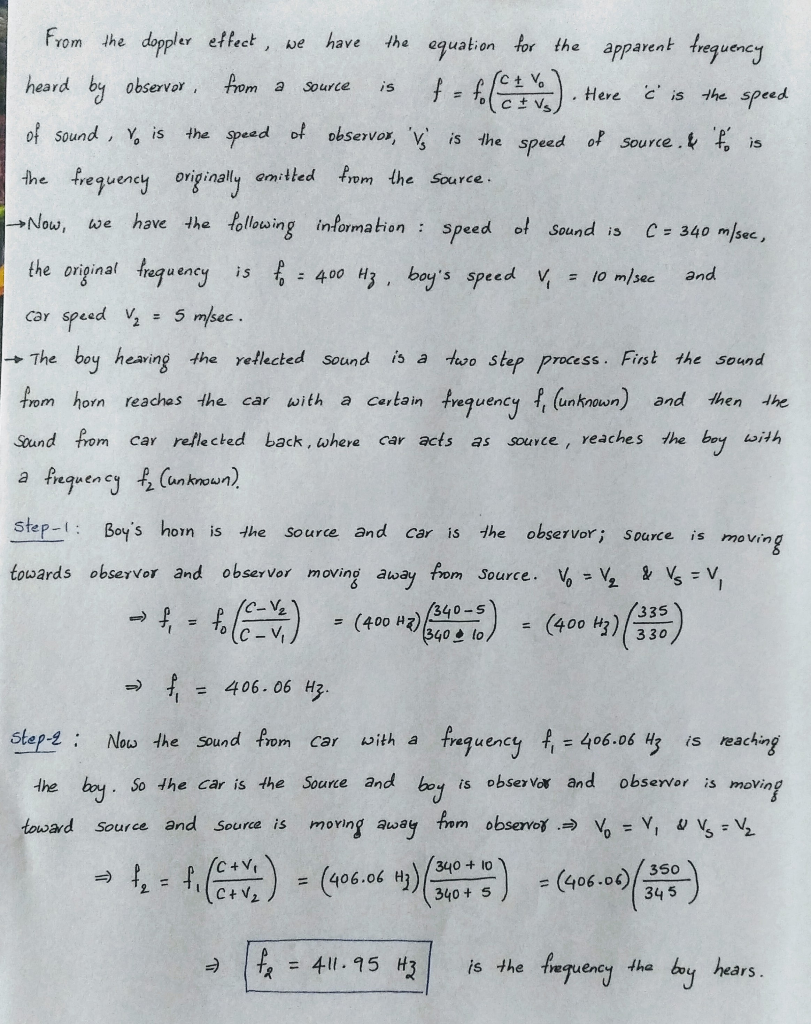 From the doppler effect, we have the equation for the apparent frequency
heard by observor, from a source is f = f₀((C ± V₀)/(C ± Vₛ)). Here 'c' is the speed
of sound, V₀ is the speed of observor, 'Vₛ' is the speed of source. & 'f₀' is
the frequency originally emitted from the source.
→Now, we have the following information : speed of sound is C = 340 m/sec,
the original frequency is f₀ = 400 Hz, boy's speed V₁ = 10 m/sec and
car speed V₂ = 5 m/sec.
→ The boy hearing the reflected sound is a two step process. First the sound
from horn reaches the car with a certain frequency f₁ (unknown) and then the
Sound from car reflected back, where car acts as source, reaches the boy with
a frequency f₂ (unknown).
Step-1: Boy's horn is the source and car is the observor; source is moving
towards observor and observor moving away from source. V₀ = V₂ & Vₛ = V₁
⇒ f₁ = f₀((C-V₂)/(C-V₁)) = (400 Hz)((340-5)/(340-10)) = (400 Hz)(335/330)
⇒ f₁ = 406.06 Hz.
Step-2: Now the sound from car with a frequency f₁ = 406.06 Hz is reaching
the boy. So the car is the Source and boy is observor and observor is moving
toward source and source is moving away from observor. ⇒ V₀ = V₁ & Vₛ = V₂
⇒ f₂ = f₁((C+V₁)/(C+V₂)) = (406.06 Hz)((340+10)/(340+5)) = (406.06)(350/345)
⇒ f₂ = 411.95 Hz is the frequency the boy hears.